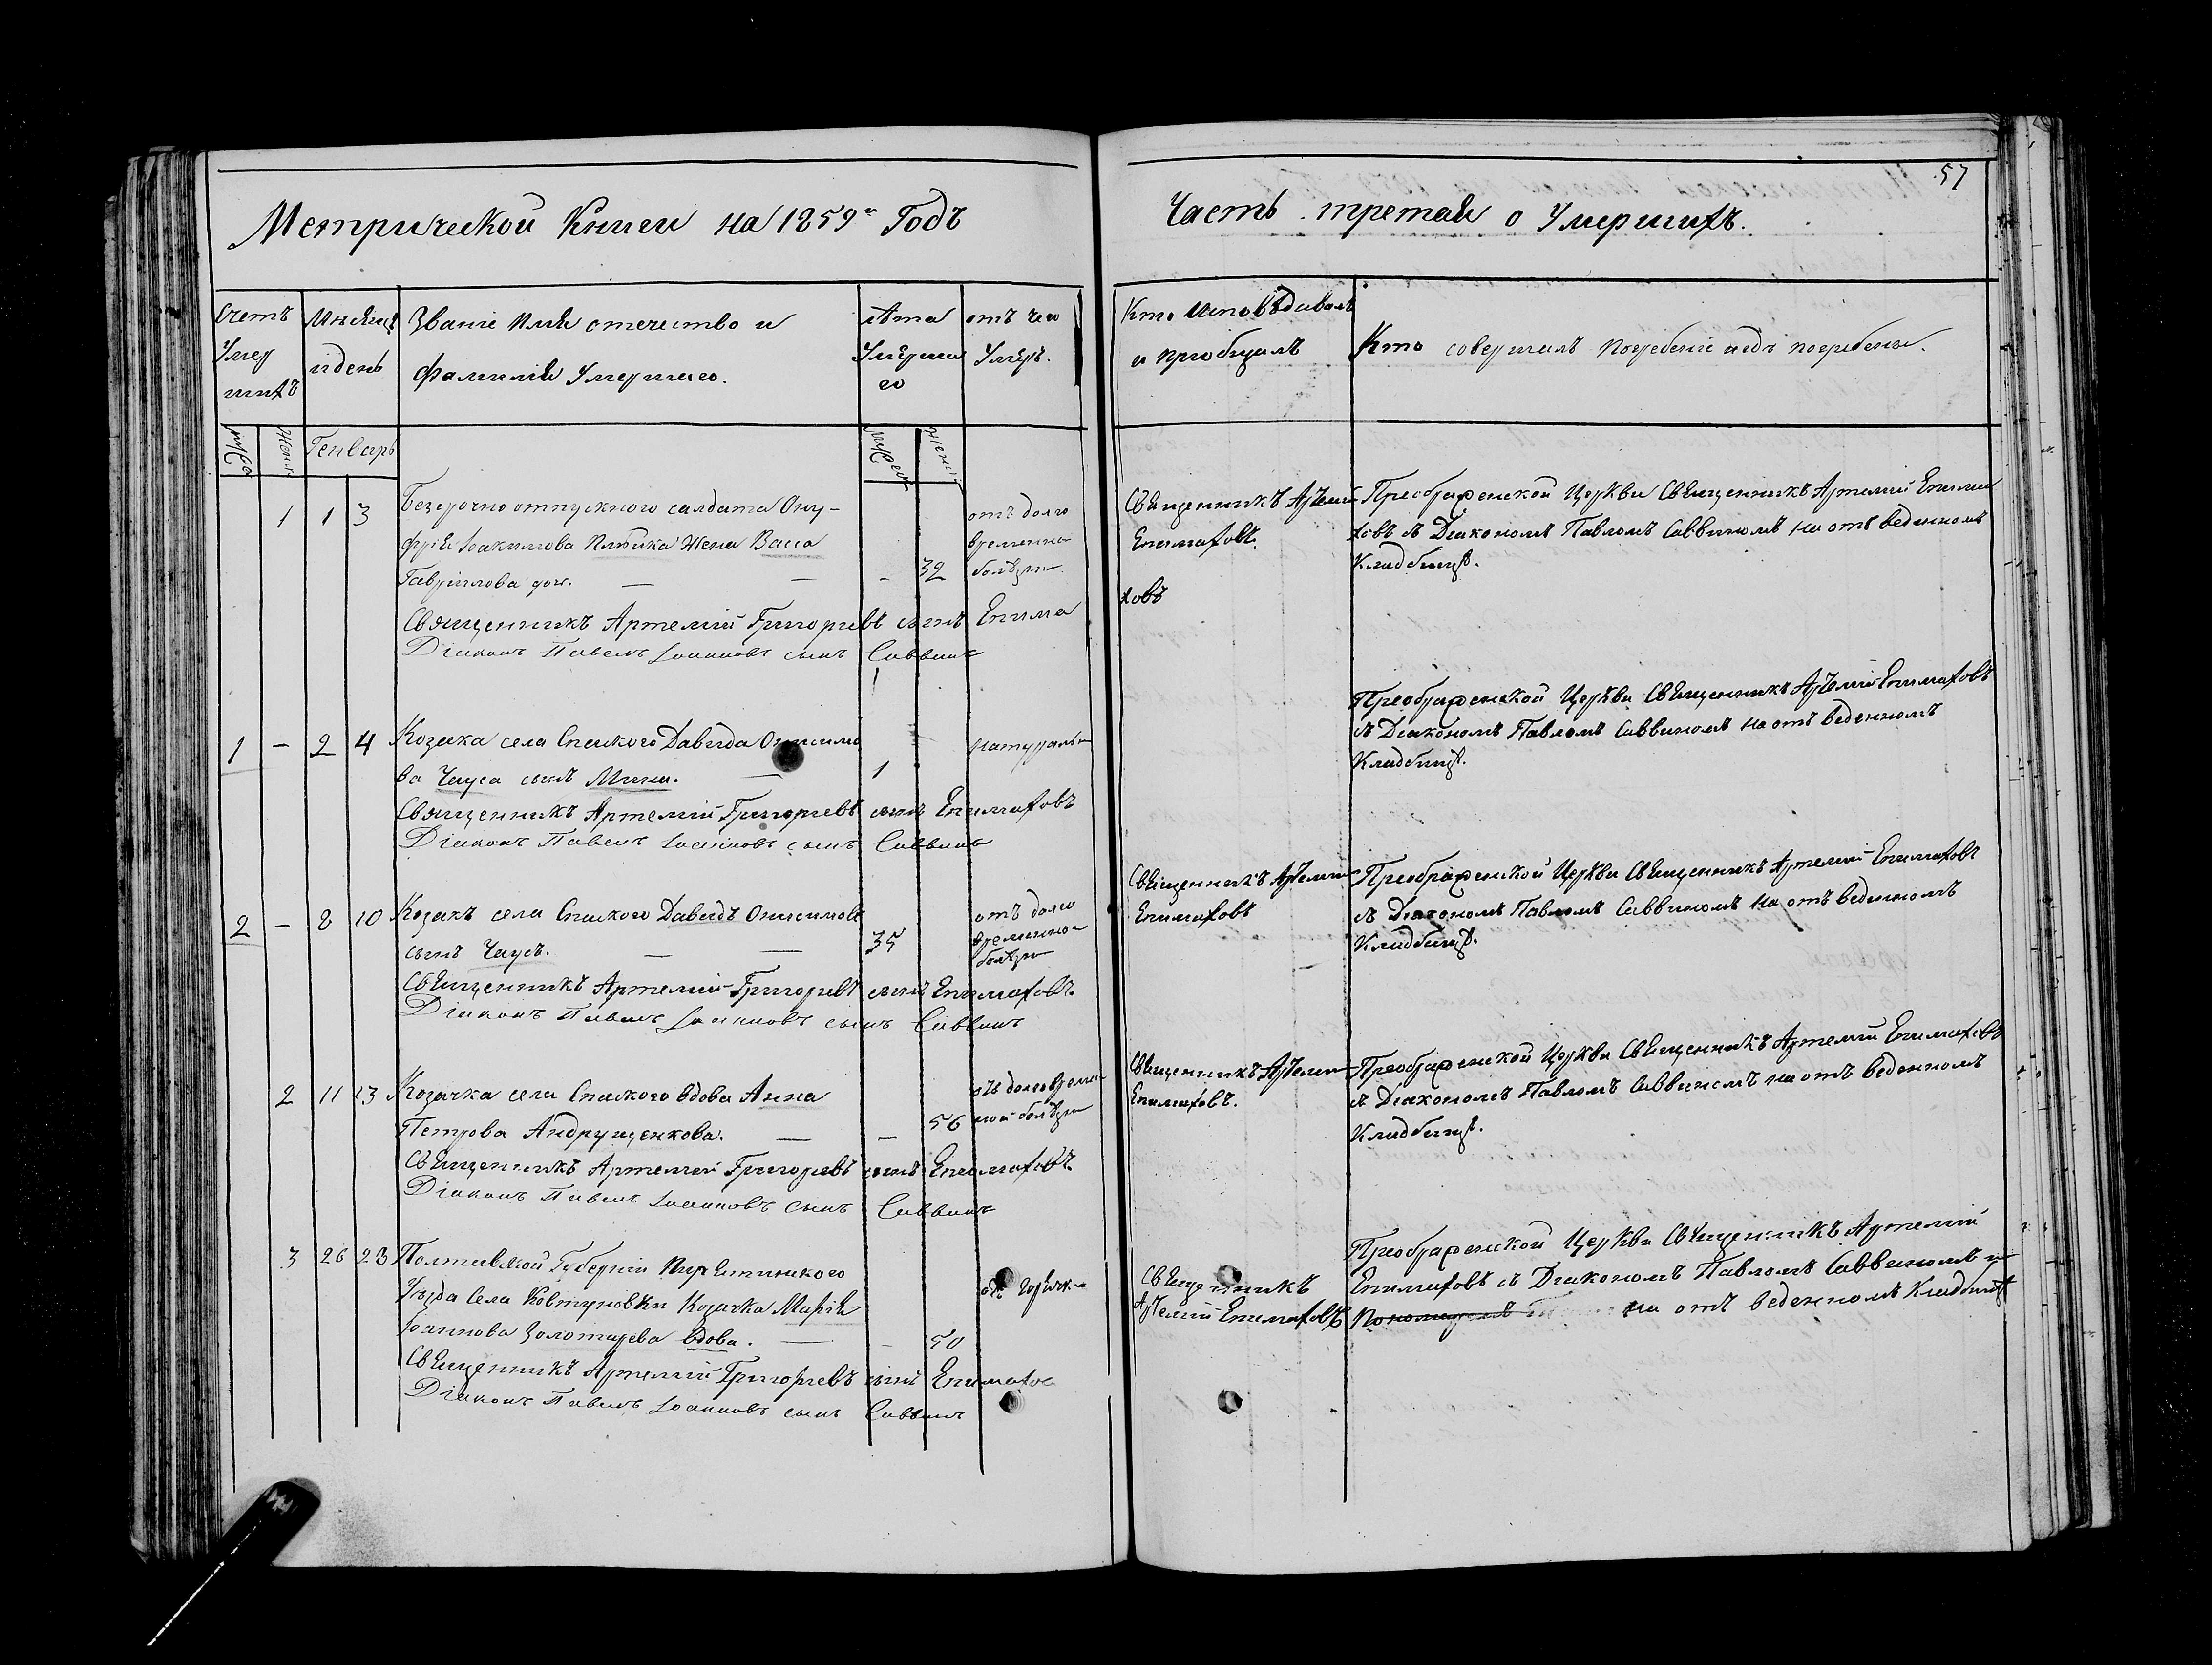 57
Метрической Книги на 1859й Годъ
Часть третая о Умершихъ.
Счетъ Умершихъ
Мѣсяцъ и день
Званіе Имя отечество и
фамилія Умершаго.
лѣта Умершаго
отъ чего Умеръ.
Кто исповѣдывалъ
и приобщалъ
Кто совершалъ погребеніе и гдѣ погребены.
муж женск
Генварь
муж женск
1 1 3 Безсрочно отпускного салдата Ону-
фрія Іоакимова жена Васса
Гавріилова доч. — — - 32
отъ долго
временно
болѣзни
Священникъ Артемій Григорьевъ сынъ Епима
ховъ
Діаконъ Павелъ Іоанновъ сынъ Саввинъ
Священникъ Артемій
Епимаховъ.
Преображенской Церкви Священникъ Артемій Епима
ховъ съ Діакономъ Павломъ Саввиномъ на отведенномъ
Кладбищѣ.
1 - 2 4 Козака села Спаского Давида Онисимо
ва Чауса сынъ Мина. — 1
натуральн
Священникъ Артемій Григорьевъ сынъ Епимаховъ
Діаконъ Павелъ Іоанновъ сынъ Саввинъ
Преображенской Церкви Священникъ Артемій Епимаховъ
съ Діакономъ Павломъ Саввиномъ на отъ веденномъ
Кладбищѣ.
2 - 8 10 Козакъ села Спаского Давидъ Онисимовъ
сынъ Чаусъ. — — 35
отъ долго
временно
болѣзн
Священникъ Артемій Григорьевъ сынъ Епимаховъ.
Діаконъ Павелъ Іоанновъ сынъ Саввинъ
Священникъ Артемій
Епимаховъ
Преображенской Церкви Священникъ Артемій Епимаховъ
съ Діакономъ Павломъ Саввиномъ на отъ веденномъ
Кладбищѣ.
2 11 13 Козачка села Спаского вдова Анна
Петрова Андрущенкова. — - 56
отъ долговремен
ной болѣзни
Священникъ Артемій Григорьевъ сынъ Епимаховъ.
Діаконъ Павелъ Іоанновъ сынъ Саввинъ
Священникъ Артемій
Епимаховъ.
Преображенской Церкви Священникъ Артемій Епимаховъ
съ Діакономъ Павломъ Саввиномъ на отъ веденномъ
Кладбищѣ.
3 26 23 Полтавской Губерніи Пирятинского
Уѣзда Села Ковтуновки Козачка Марія
Золотарева вдова. — - 50
отъ горячк
Священникъ Артемій Григорьевъ сынъ Епимахов
Діаконъ Павелъ Іоанновъ сынъ Саввинъ
Священникъ
Артемій Епимаховъ
Преображенской Церкви Священникъ Артемій
Епимаховъ съ Діакономъ Павломъ Саввиномъ и
Пономаремъ на отъ веденномъ Кладбищѣ